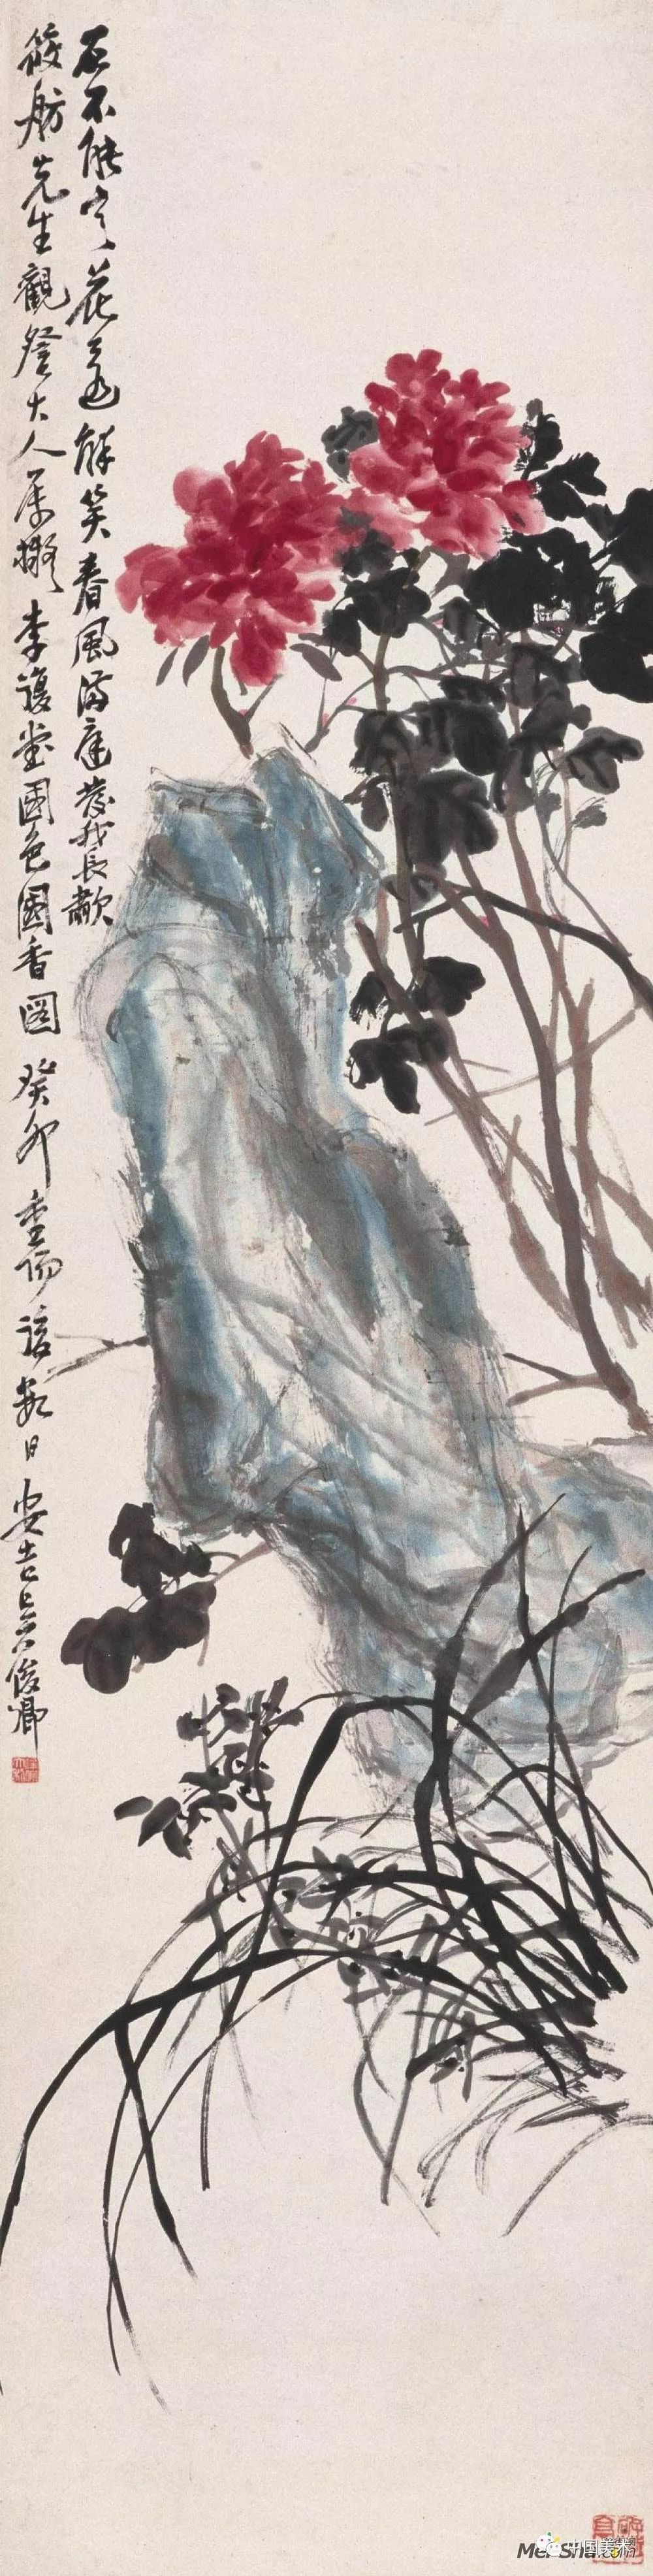 石不能言花遂解笑春風滿庭發我長歗
筱舫先生觀詧大人屬擬李復堂國色國香圖癸卯重陽後數日安吉吳俊卿
Mei-Sha.com
中国美术